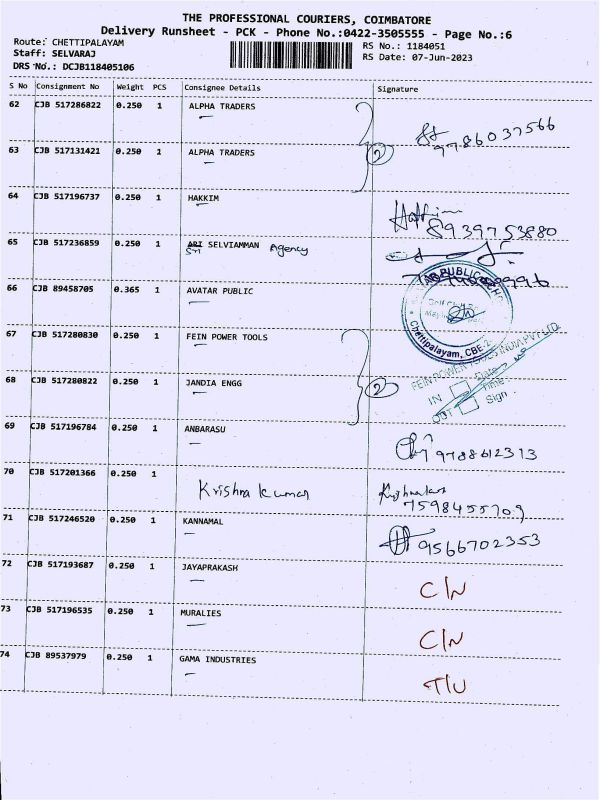 THE PROFESSIONAL COURIERS, COIMBATORE
Delivery Runsheet - PCK - Phone No.:0422-3505555 - Page No.:6
Route: CHETTIPALAYAM
RS No.: 1184051
Staff: SELVARAJ
RS Date: 07-Jun-2023
DRS No.: DCJB118405106
S No Consignment No Weight PCS Consignee Details Signature
62 CJB 517286822 0.250 1 ALPHA TRADERS
9786037566
63 CJB 517131421 0.250 1 ALPHA TRADERS 2
64 CJB 517196737 0.250 1 HAKKIM
8939753880
65 CJB 517236859 0.250 1 SRI SELVIAMMAN Agency
66 CJB 89458705 0.365 1 AVATAR PUBLIC
PUBLIC
Chettipalayam, CBE-2
67 CJB 517280830 0.250 1 FEIN POWER TOOLS
FEIN POWER TOOLS INDIA PVT LTD.
68 CJB 517280822 0.250 1 JANDIA ENGG 2
IN Date
Time
OUT Sign
69 CJB 517196784 0.250 1 ANBARASU
9788612313
70 CJB 517201366 0.250 1
Krishna kumar
7598455709
71 CJB 517246520 0.250 1 KANNAMAL
9566702353
72 CJB 517193687 0.250 1 JAYAPRAKASH
C/N
73 CJB 517196535 0.250 1 MURALIES
C/N
74 CJB 89537979 0.250 1 GAMA INDUSTRIES
T/U